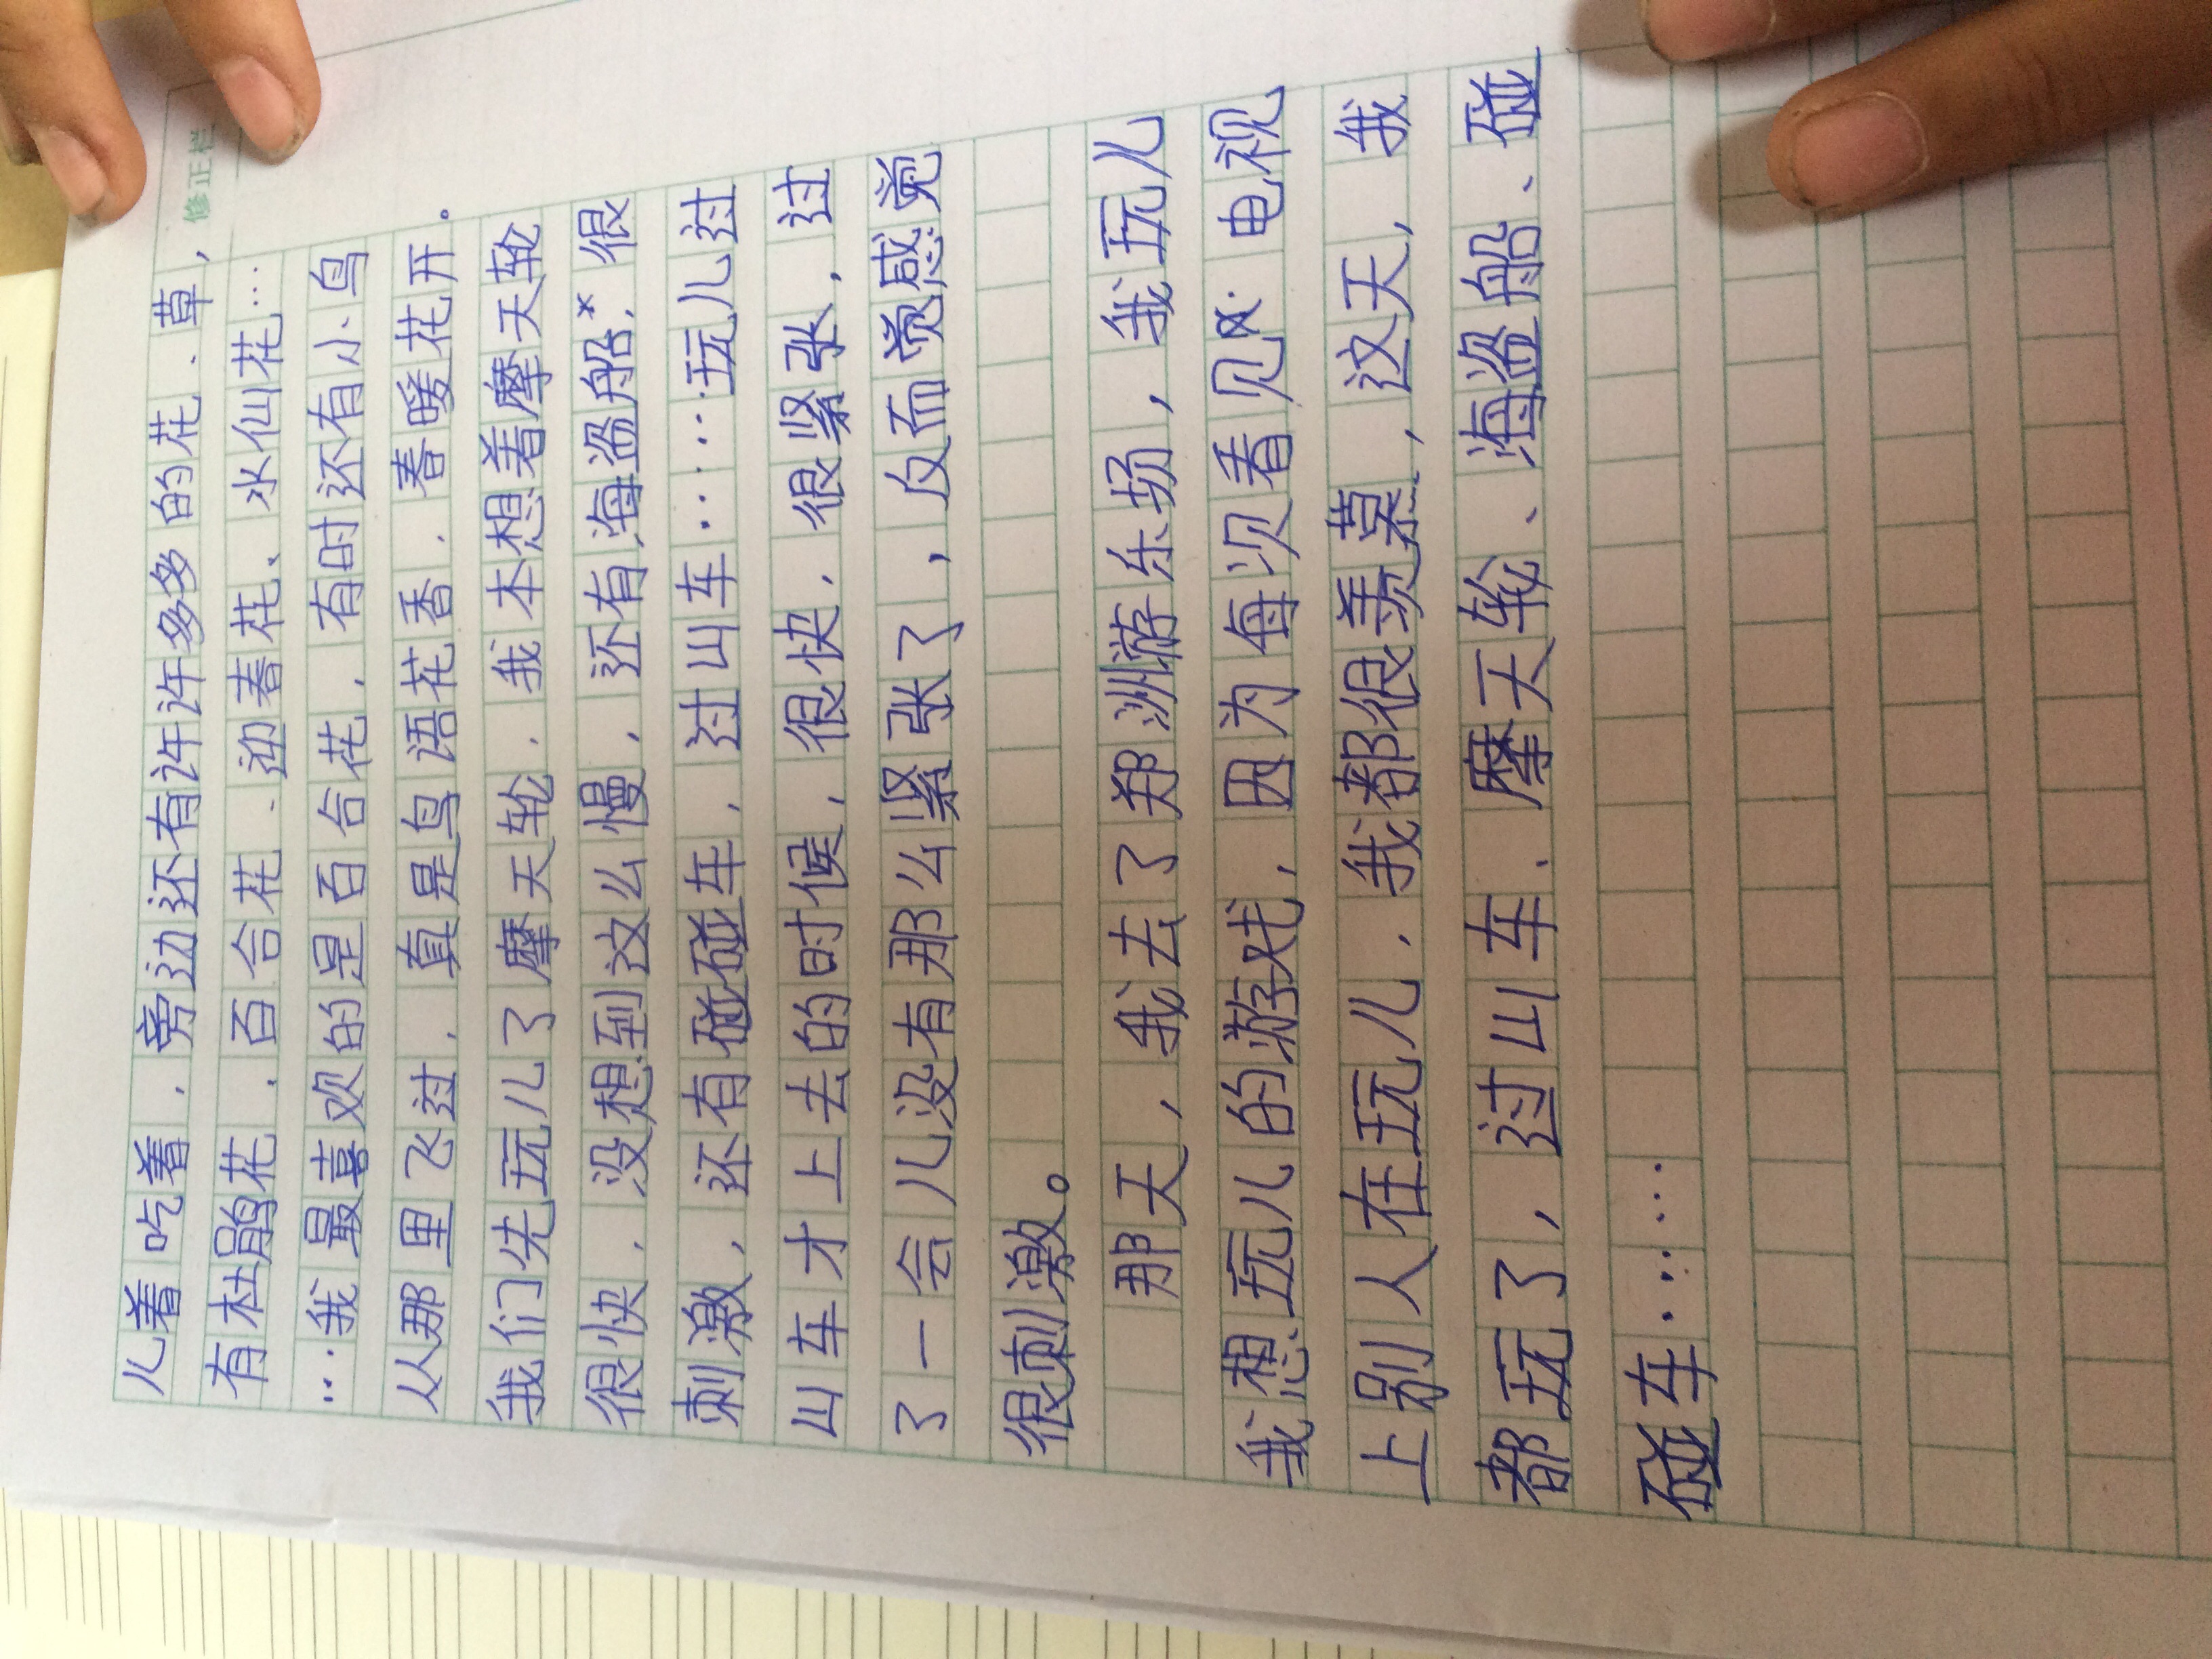 修正栏
儿着吃着，旁边还有许许多多的花、草，
有杜鹃花，百合花、迎春花、水仙花…
…我最喜欢的是百合花，有时还有小鸟
从那里飞过，真是鸟语花香，春暖花开。
我们先玩儿了摩天轮，我本想着摩天轮
很快，没想到这么慢，还有海盗船，很
刺激，还有碰碰车，过山车……玩儿过
山车才上去的时候，很快，很紧张，过
了一会儿没有那么紧张了，反而觉感觉
很刺激。
那天，我去了郑洲游乐场，我玩儿
我想玩儿的游戏，因为每次看见电视
上别人在玩儿，我都很羡慕，这天，我
都玩了，过山车、摩天轮、海盗船、碰
碰车……